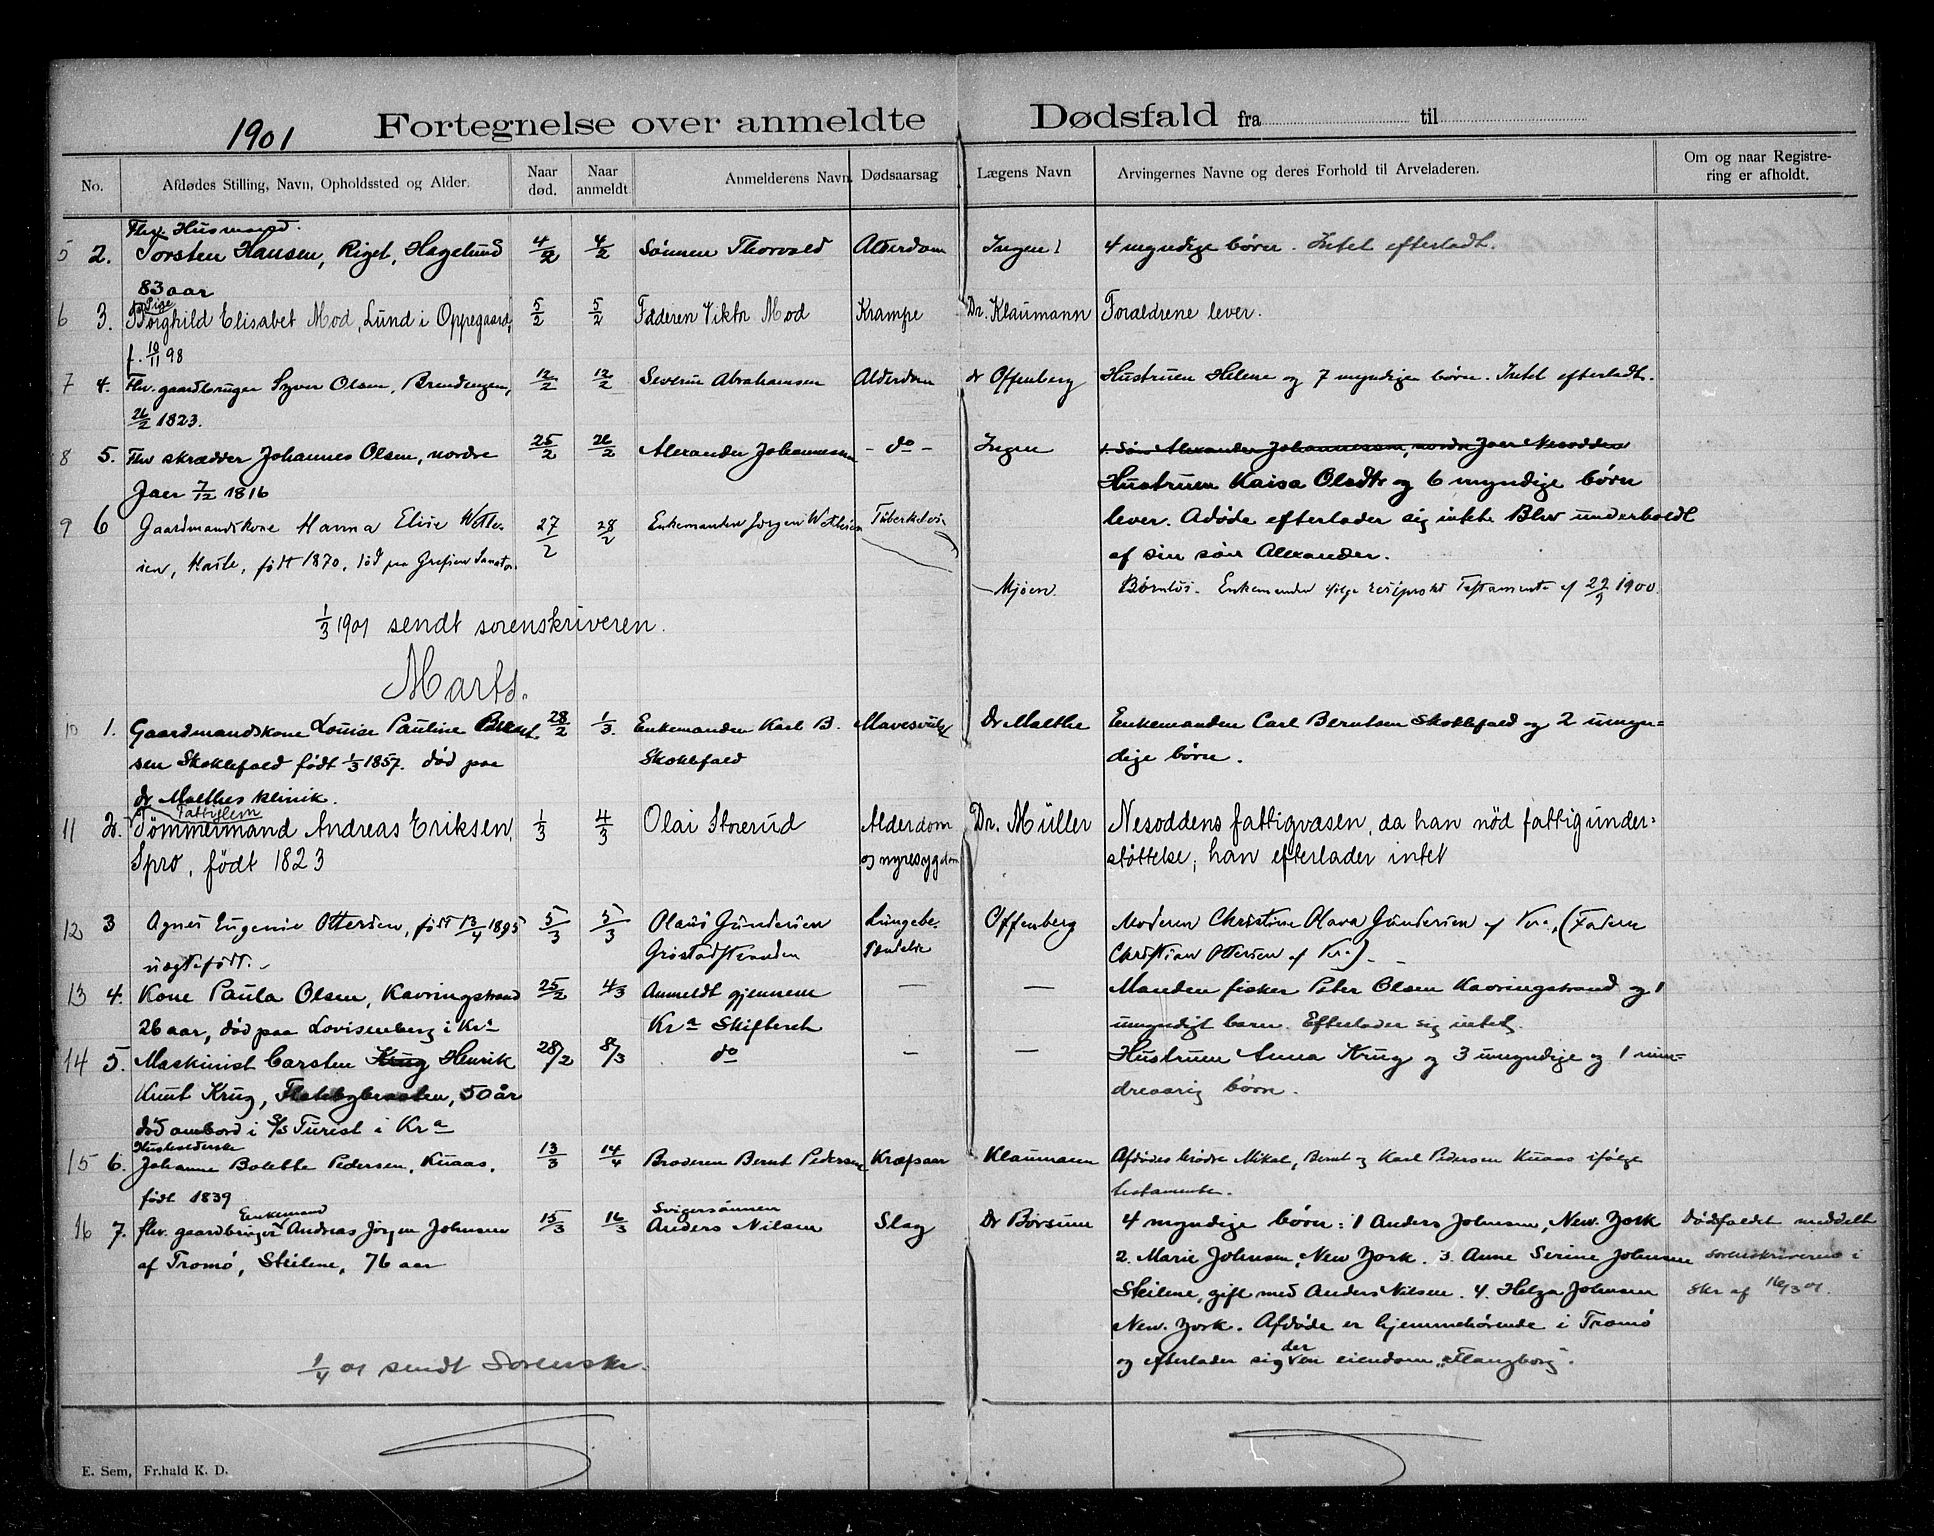 1901 Fortegnelse over anmeldte Dødsfald fra til
No. Afdødes Stilling, Navn, Opholdssted og Alder. Naar død. Naar anmeldt Anmelderens Navn. Dødsaarsag Lægens Navn Arvingernes Navne og deres Forhold til Arveladeren. Om og naar Registrering er afholdt.
Fhv. Husmand.
5 2. Torsten Hansen, Riget, Hagelund 4/2 4/2 Sønnen Thorvald Alderdom Ingen 4 myndige børn. Intet efterladt.
83 aar
Pige
6 3. Borghild Elisabet Mod, Lund i Oppegaard, 5/2 5/2 Faderen Viktor Mod Krampe Dr. Klaumann Forældrene lever.
f. 10/11 98
7 4. Fhv. gaardbruger Syver Olsen, Brendengen, 12/2 12/2 Severin Abrahamsen Alderdom dr Offenberg Hustruen Helene og 7 myndige børn. Intet efterladt.
26/2 1823.
8 5. Fhv skrædder Johannes Olsen, nordre 25/2 26/2 Alexander Johannessen - do - Ingen 1. Søn Alexander Johannessen, nordre Jaer Nesodden
Jaer 7/12 1816 Hustruen Kaisa Olsdtr og 6 myndige børn
9 6 Gaardmandskone Hanna Elise 27/2 28/2 Enkemanden Jørgen Tuberkulose lever. Adøde efterlader sig intet. Blev underholdt
født 1870, død paa Grefsen Sanator. af sin søn Alexander.
Mjøen. Børnløs. Enkemanden ifølge resiprokt Testamente af 29/9 1900.
1/3 1901 sendt sorenskriveren.
Marts.
10 1. Gaardmandskone Louise Pauline Bernt- 28/2 1/3. Enkemanden Karl B. Mavesvulst Dr Malthe Enkemanden Carl Berntsen Skoklefald og 2 umyn-
sen Skoklefald født 1/3 1857. død paa Skoklefald dige børn.
dr Malthes klinik.
Fattiglem
11 2. Tømmermand Andreas Eriksen, 1/3 4/3 Olai Storerud Alderdom Dr. Müller Nesoddens fattigvæsen, da han nød fattigunder-
Spro, født 1823 og nyresygdom støttelse; han efterlader intet
12 3 Agnes Eugenie Ottersen, født 13/4 1895 5/3 5/3 Olaus Gundersen Lungebe- Offenberg Moderen Christine Olava Gundersen af Kra., (Faderen
uægtefødt. Grøstadstranden tændelse Christian Ottersen af Kra).
13 4. Kone Paula Olsen, Kavringstrand 25/2 4/3 Anmeldt gjennem — — Manden fisker Peter Olsen Kavringstrand og 1
26 aar, død paa Lovisenberg i Kra Kra Skifteret umyndigt barn. Efterlader sig intet.
14 5. Maskinist Carsten Krug Henrik 28/2 8/3 do — — Hustruen Anna Krug og 3 umyndige og 1 min-
Knut Krug, Flatebybraaten, 50 år dreaarig børn.
død ombord i S/S Turist i Kra
Husholderske
15 6. Johanne Bolette Pedersen, Knaas. 13/3 14/4 Broderen Bernt Pedersen Kræfsaar Klaumann Afdødes brødre Mikal, Bernt og Karl Pedersen Knaas ifølge
født 1839 testamente.
Enkemand Svigersønnen
16 7. fhv. gaardbruger Andreas Jörgen Johnsen 15/3 16/3 Anders Nilsen Slag Dr Börsum 4 myndige börn: 1 Anders Johnsen, New. York Dødsfaldet meddelt
af Tromø, Steilene, 76 aar 2. Marie Johnsen, New York. 3. Anne Serine Johnsen sorenskriveren i
Steilene, gift med Anders Nilsen. 4. Helga Johnsen skr af 16/3 01.
New. York. Afdøde er hjemmehørende i Tromø
og efterlader sig der en eiendom "Flangborg".
1/4 01 sendt Sorenskr.
E. Sem, Fr.hald K. D.